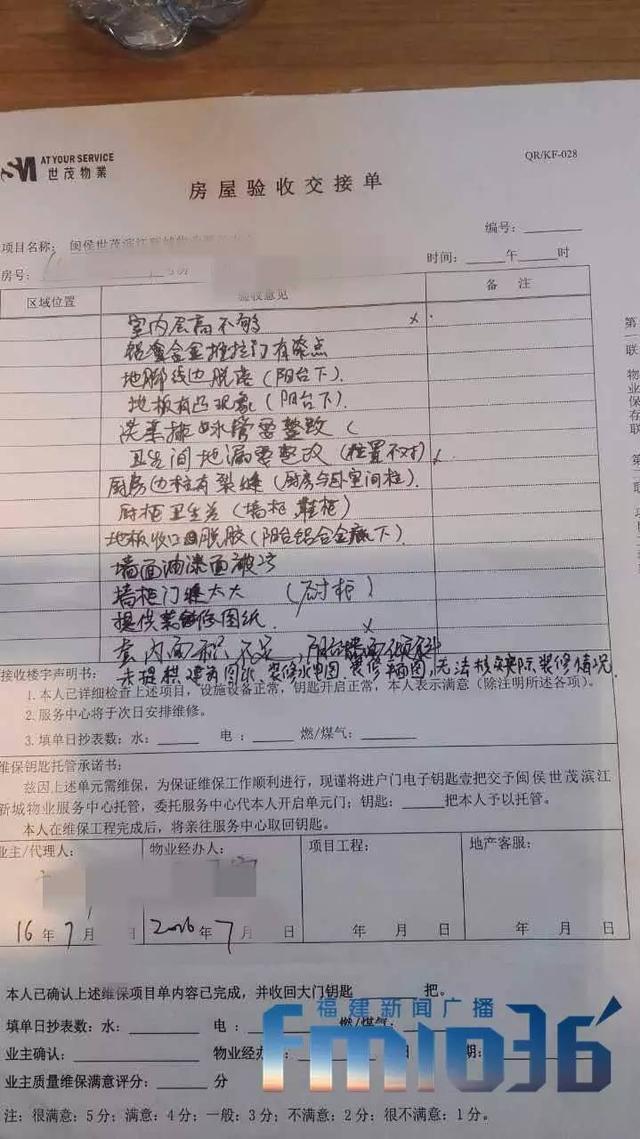 SM AT YOUR SERVICE
世茂物業
QR/KF-028
房屋验收交接单
编号：
项目名称： 闽侯世茂滨江新城
房号： 时间： 午 时
区域位置 验收意见 备 注
室内层高不够 x
铝合金推拉门有
地脚线边脱落（阳台下）.
地板有凸现象（阳台下）.
洗菜排水管要整改（
卫生间地漏要整改（位置不对）
厨房边柱有裂缝（厨房与卧室间柱）.
厨柜卫生差（墙柜，鞋柜）
地板收口脱胶（阳台铝合金底下）.
墙面油漆面破
墙柜门缝太大 （厨柜）
提供装修图纸. x
室内面积不足，阳台墙面倾斜
未提供建筑图纸，装修水电图，装修图，无法核实实际装修情况.
接收楼宇声明书：
1. 本人已详细检查上述项目，设施设备正常，钥匙开启正常，本人表示满意（除注明所述各项）。
2. 服务中心将于次日安排维修。
3. 填单日抄表数：水： 电： 燃/煤气：
维保钥匙托管承诺书：
兹因上述单元需维保，为保证维保工作顺利进行，现谨将进户门电子钥匙壹把交予闽侯世茂滨江
新城物业服务中心托管，委托服务中心代本人开启单元门；钥匙： 把本人予以托管。
本人在维保工程完成后，将亲往服务中心取回钥匙。
业主/代理人： 物业经办人： 项目工程： 地产客服：
16年7月 日 2016年7月 日 年 月 日 年 月 日
本人已确认上述维保项目单内容已完成，并收回大门钥匙 把。
填单日抄表数：水： 电： 燃/煤气：
业主确认： 物业经办 日 期：
业主质量维保满意评分： 分
注：很满意：5分；满意：4分；一般：3分；不满意：2分；很不满意：1分。
第一联
物业保存联
第二联
福建新闻广播
fm1036